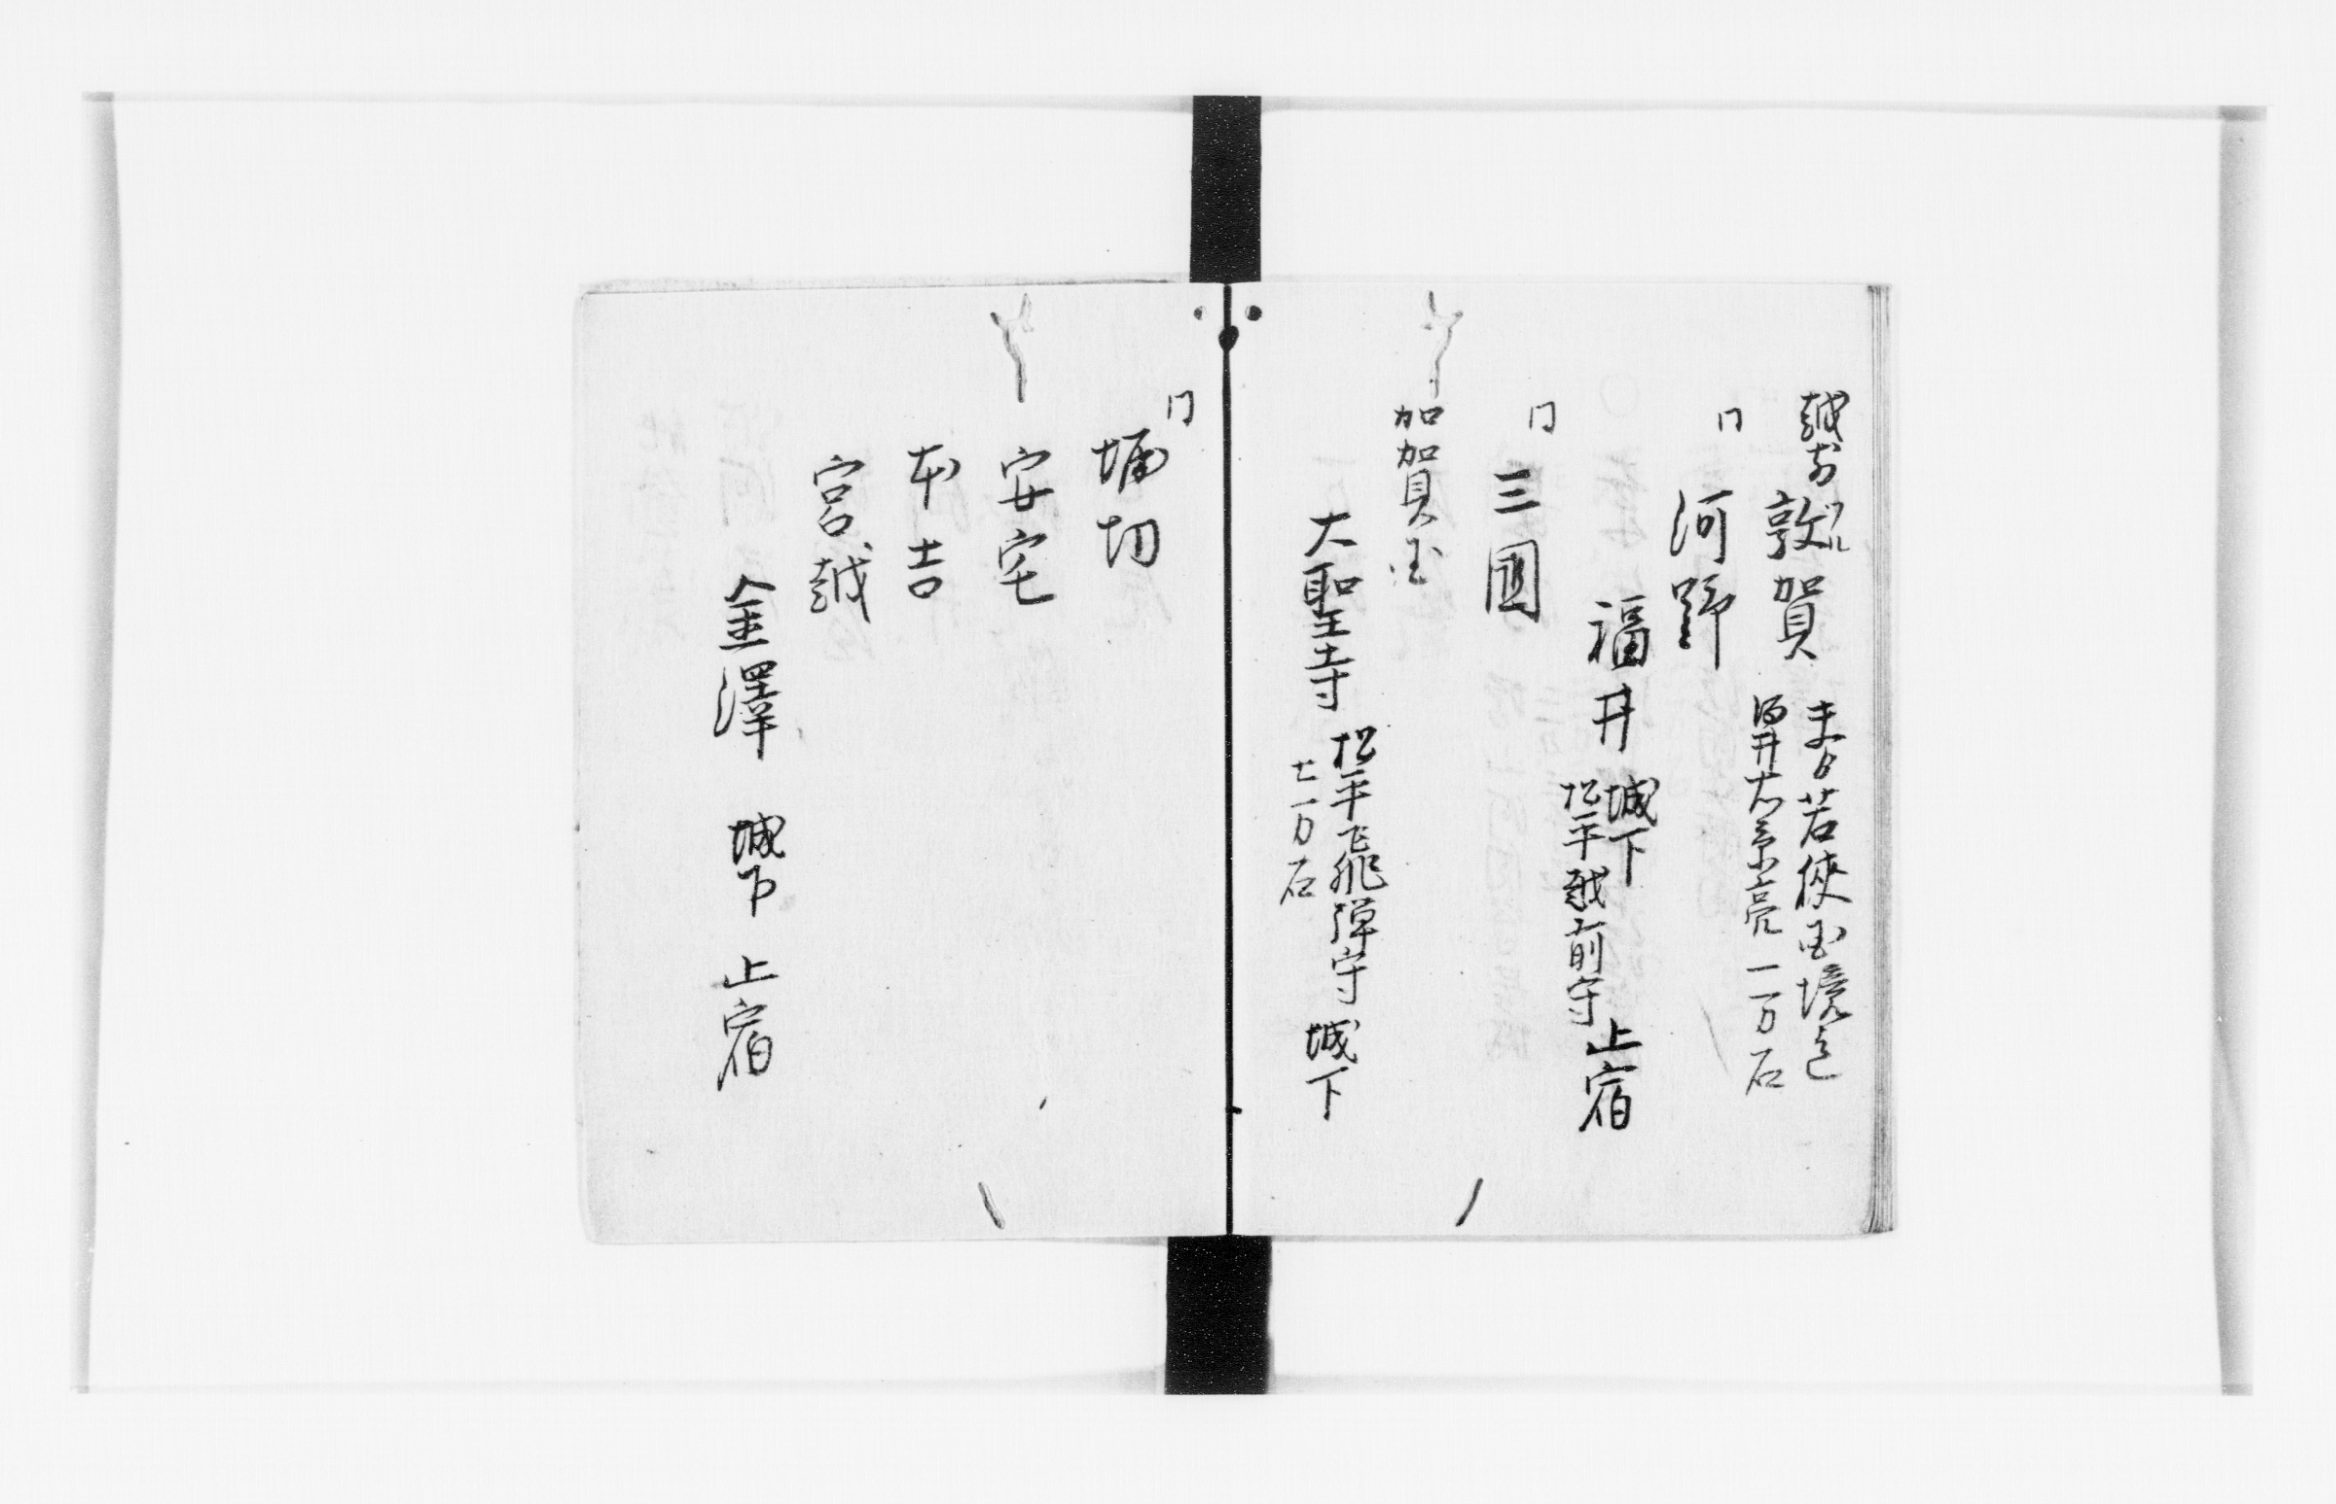 越前
敦賀
ツル
若狭国境也
酒井右京亮 一万石
同
河野
福井
城下
松平越前守
上宿
同
三國
加賀国
大聖寺
松平飛弾守 城下
七万石
同
堀切
安宅
本吉
宮越
金澤 城下 上宿